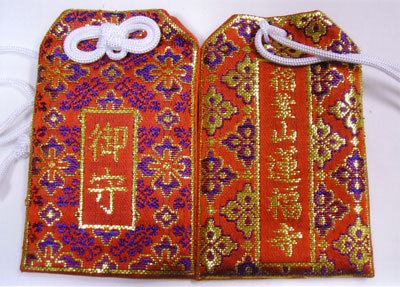 御守
稲葉山蓮福寺